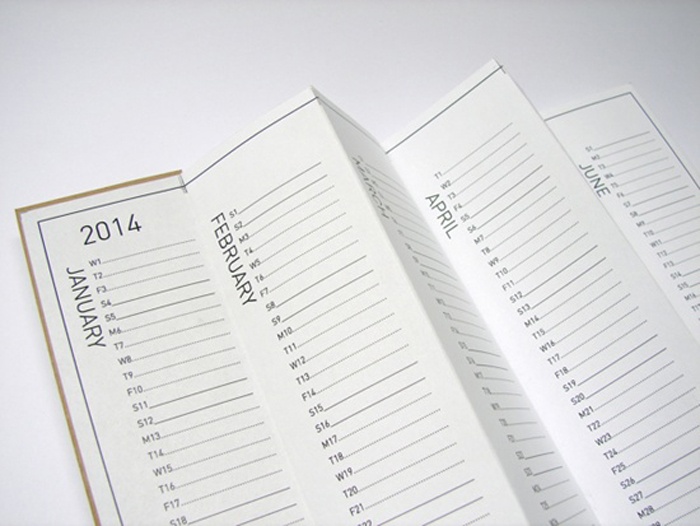 2014
JANUARY
W1
T2
F3
S4
S5
M6
T7
W8
T9
F10
S11
S12
M13
T14
W15
T16
F17
S18
FEBRUARY
S1
S2
M3
T4
W5
T6
F7
S8
S9
M10
T11
W12
T13
F14
S15
S16
M17
T18
W19
T20
F21
MARCH
APRIL
T1
W2
T3
F4
S5
S6
M7
T8
W9
T10
F11
S12
S13
M14
T15
W16
T17
F18
S19
S20
M21
T22
W23
T24
F25
S26
S27
M28
JUNE
S1
M2
T3
W4
T5
F6
S7
S8
M9
T10
W11
T12
F13
S14
S15